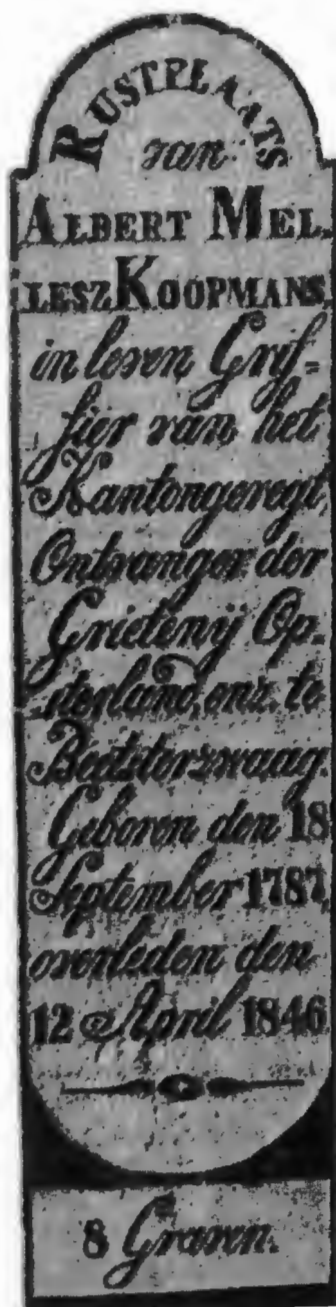 RUSTPLAATS
van
ALBERT MEL-
LESZ KOOPMANS,
in leven Grif=
fier van het
Kantongeregt,
Ontvanger der
Grietenij Op-
sterland, enz. te
Beetsterzwaag.
Geboren den 18
September 1787,
overleden den
12 April 1846.
8 Graven.